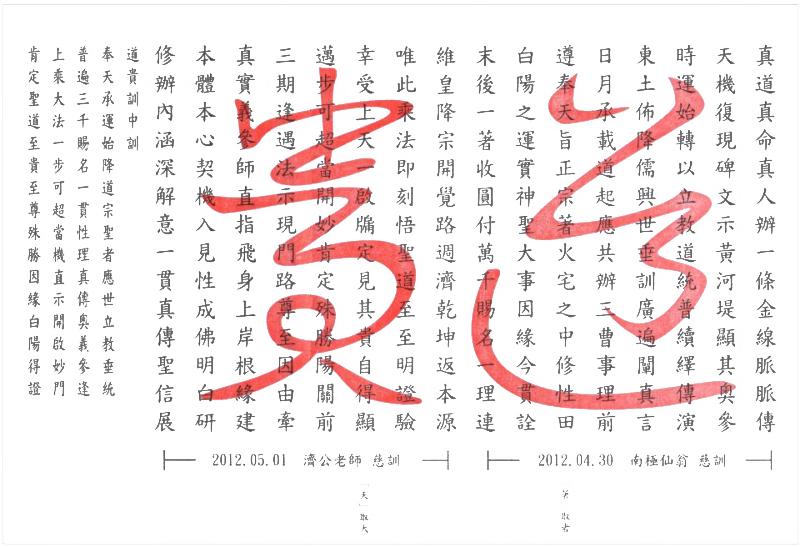 真道真命真人辦一條金線脈脈傳
天機復現碑文示黃河堤顯其奧參
時運始轉以立教道統普續繹傳演
東土佈降儒興世垂訓廣遍闡真言
日月承載道起應共辦三曹事理前
遵奉天旨正宗著火宅之中修性田
白陽之運實神聖大事因緣今貫詮
末後一著收圓付萬千賜名一理連
維皇降宗開覺路週濟乾坤返本源
唯此乘法即刻悟聖道至至明證驗
幸受上天一啟牖定見其貴自得顯
邁步可超當開妙肯定殊勝陽關前
三期逢遇法示現門路尊至因由牽
真實義參師直指飛身上岸根緣建
本體本心契機入見性成佛明白研
修辦內涵深解意一貫真傳聖信展
道貴訓中訓
奉天承運始降道宗聖者應世立教垂統
普遍三千賜名一貫性理真傳奧義參逢
上乘大法一步可超當機直示開啟妙門
肯定聖道至貴至尊殊勝因緣白陽得證
道貴
2012.04.30 南極仙翁 慈訓
2012.05.01 濟公老師 慈訓
「天」取大